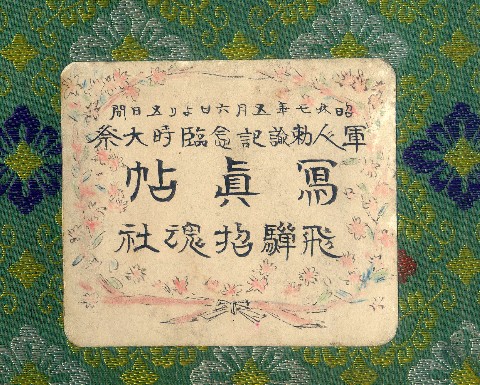 昭和七年五月六日より五日間
軍人勅諭記念臨時大祭
寫眞帖
飛驒招魂社